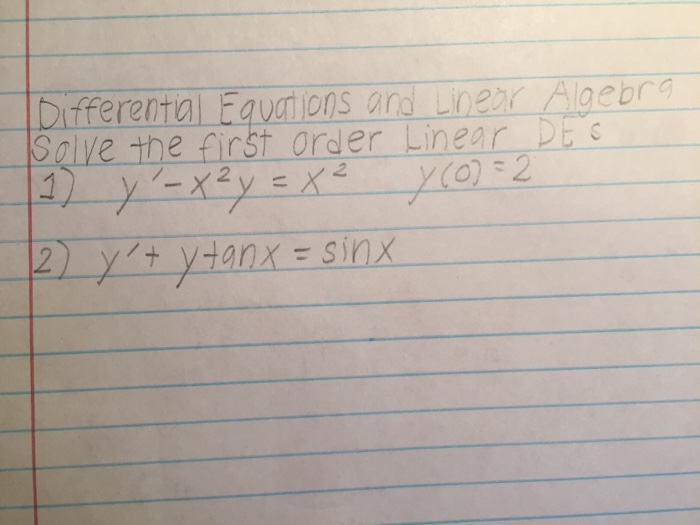 Differential Equations and Linear Algebra
Solve the first order Linear DEs
1) y' - x²y = x² y(0) = 2
2) y' + y tanx = sinx